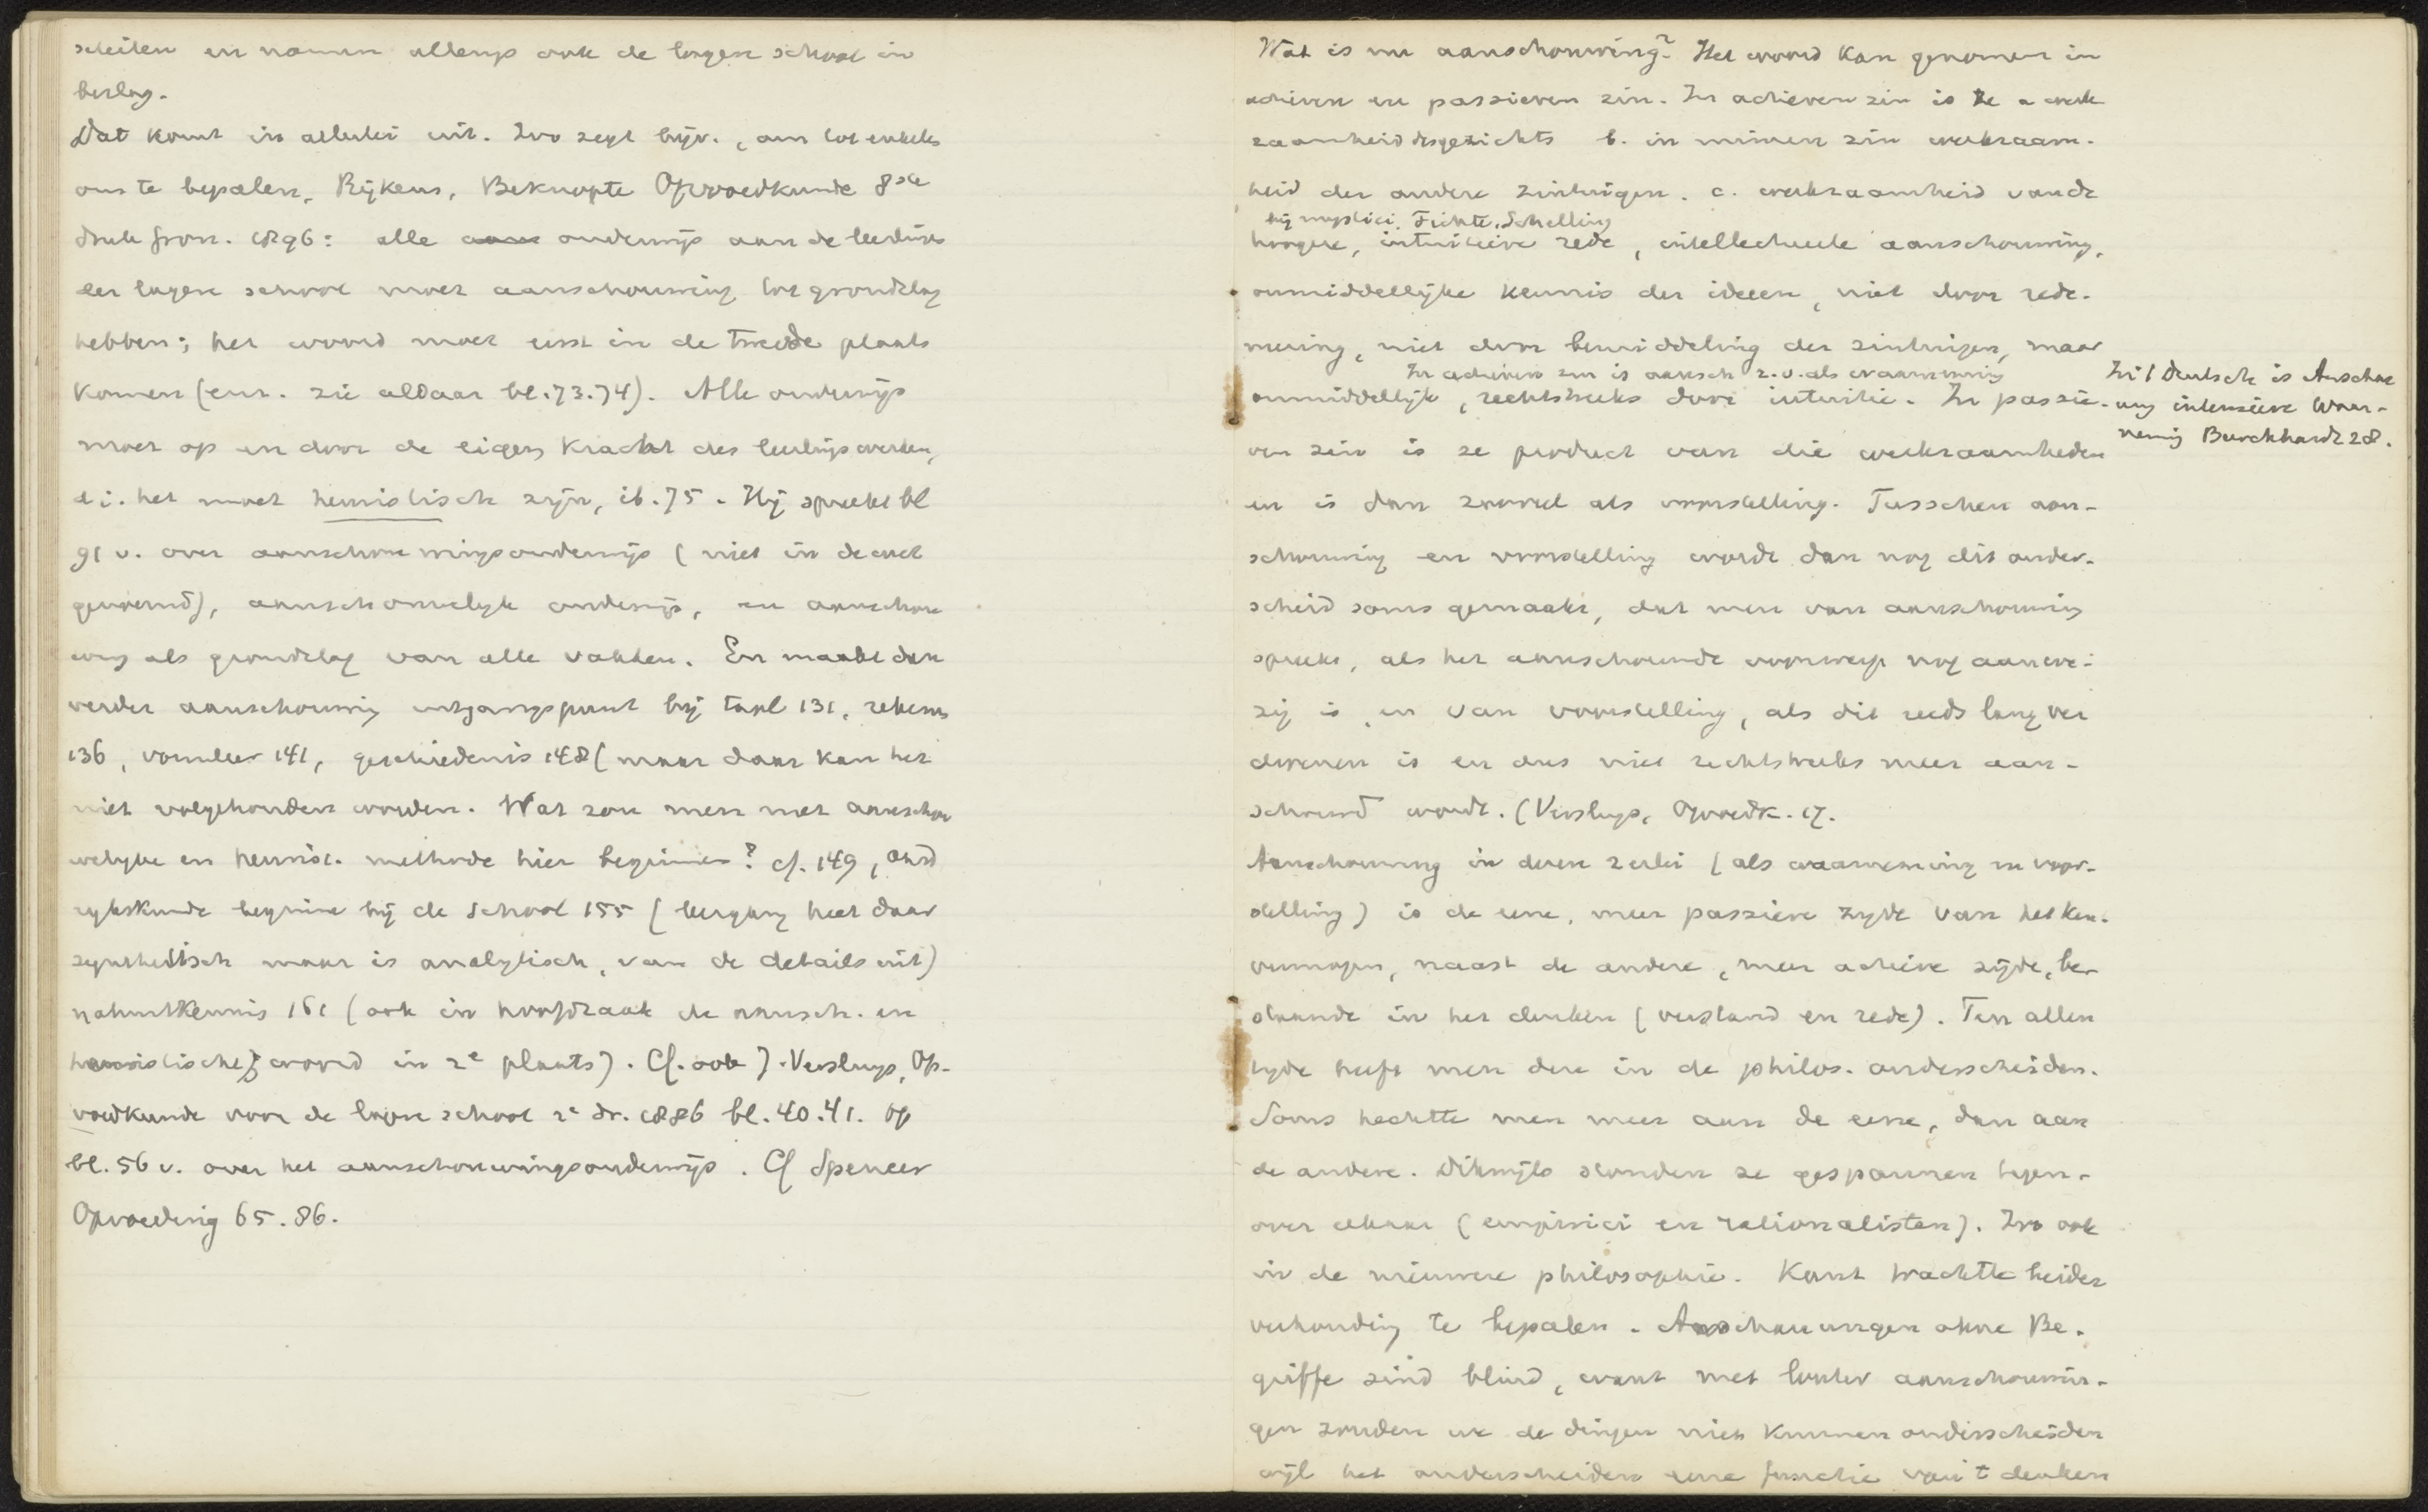 scheiden en namen allengs ook de lagere school in
beslag.
Dat komt in allerlei uit. Zoo zegt bijv., om tot enkele
ons te bepalen, Rijkens, Beknopte Opvoedkunde 8ste
druk Gron. 1896: alle onderwijs aan de leerlings
der lagere school moet aanschouwing tot grondslag
hebben; het woord moet eerst in de tweede plaats
komen (enz. zie aldaar bl. 73.74). Alle onderwijs
moet op en door de eigen kracht des leerlings werken,
d.i. het moet heuristisch zijn, ib. 75. Hij spreekt bl
91 v. over aanschouwingsonderwijs (niet in de wet
genoemd), aanschouwelijk onderwijs, en aanschou
wing als grondslag van alle vakken. En maakt dan
verder aanschouwing uitgangspunt bij taal 131, rekenen
136, vormleer 141, geschiedenis 148 (maar daar kan het
niet volgehouden worden. Wat zou men met aanschou
welijke en heurist. methode hier beginnen? cf. 149, aard
rijkskunde beginne bij de school 155 (leergang heet daar
synthetisch maar is analytisch, van de details uit)
natuurkennis 161 (ook in hoofdzaak de aansch. en
heuristische; woord in 2e plaats). Cf. ook J. Versluys, Op-
voedkunde voor de lagere school 2e dr. 1886 bl. 40.41. op
bl. 56 v. over het aanschouwingsonderwijs. Cf Spencer
Opvoeding 65.86.
Wat is nu aanschouwing? Het woord kan genomen in
actieven en passieven zin. In actieven zin is ze a werk
zaamheid des gezichts b. in ruimeren zin werkzaam-
heid der andere zintuigen. c. werkzaamheid van de
bij mystici, Fichte, Schelling
hoogere, intuitieve rede, intellectueele aanschouwing,
onmiddellijke kennis der ideeen, niet door rede-
neering, niet door bemiddeling der zintuigen, maar
In actieven zin is aansch z.v. als waarneming
onmiddellijk, rechtstreeks door intuitie. In passie-
In 't Deutsch is Anschau
ung intensieve Waar-
neming Burckhardt 28.
ven zin is ze product van die werkzaamheden
en is dan zooveel als voorstelling. Tusschen aan-
schouwing en voorstelling wordt dan nog dit onder-
scheid soms gemaakt, dat men van aanschouwing
spreekt, als het aanschouwde voorwerp nog aanwe-
zig is, en van voorstelling, als dit reeds lang ver
dwenen is en dus niet rechtstreeks meer aan-
schouwd wordt. (Versluys, Opvoedk. 17.
Aanschouwing in dezen zin (als waarneming en voor-
stelling) is de eene, meer passieve zijde van het ken-
vermogen, naast de andere, meer actieve zijde, be-
staande in het denken (verstand en rede). Ten allen
tijde heeft men deze in de philos. onderscheiden.
Soms hechtte men meer aan de eene, dan aan
de andere. Dikwijls stonden ze gespannen tegen-
over elkaar (empirici en rationalisten). Zoo ook
in de nieuwere philosophie. Kant trachtte beider
verhouding te bepalen. Anschauungen ohne Be-
griffe sind blind, want met louter aanschouwin-
gen zouden we de dingen niet kunnen onderscheiden
wijl het onderscheiden eene functie van 't denken